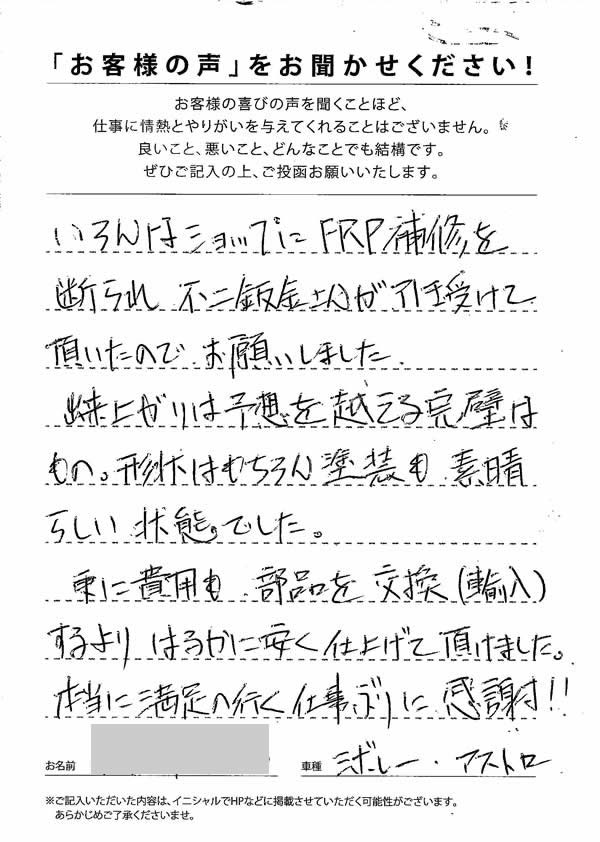 「お客様の声」をお聞かせください!
お客様の喜びの声を聞くことほど、
仕事に情熱とやりがいを与えてくれることはございません。
良いこと、悪いこと、どんなことでも結構です。
ぜひご記入の上、ご投函お願いいたします。
いろんなショップに FRP補修を
断られ 不二鈑金さんが引き受けて
頂いたので お願いしました.
出来上がりは予想を越える完璧な
もの。形状はもちろん 塗装も 素晴
らしい 状態でした。
更に費用も 部品を 交換(輸入)
するより はるかに安く 仕上げて 頂けました。
本当に満足の行く仕事ぶりに 感謝!!
お名前 車種 シボレー・アストロ
※ご記入いただいた内容は、イニシャルでHPなどに掲載させていただく可能性がございます。
あらかじめご了承くださいませ。